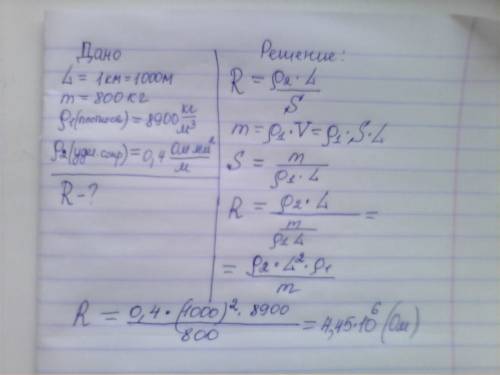 Дано
L = 1км = 1000м
m = 800кг
ρ1(плотность) = 8900 кг/м³
ρ2(удел. сопр) = 0,4 Ом мм²/м
R - ?
Решение:
R = ρ2 · L / S
m = ρ1 · V = ρ1 · S · L
S = m / ρ1 · L
R = ρ2 · L / m / ρ1 L =
= ρ2 · L² · ρ1 / m
R = 0,4 · (1000)² · 8900 / 800 = 4,45 · 10⁶ (Ом)